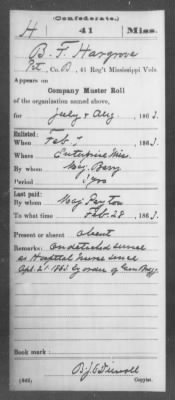 (Confederate.)
H 41 Miss.
B. F. Hargrove
Pvt, Co. B, 41 Reg't Mississippi Vols.
Appears on
Company Muster Roll
of the organization named above,
for July & Aug, 1863.
Enlisted:
When Feb 7, 1863.
Where Enterprise Miss.
By whom Maj. Barry
Period 3 yrs
Last paid:
By whom Maj Peyton
To what time Feb 28, 1863.
Present or absent Absent
Remarks: On detached
as Hospital Nurse since
Apr. 2d 1863 by order of Genl Bragg.
Book mark:
(642)
Copyist.